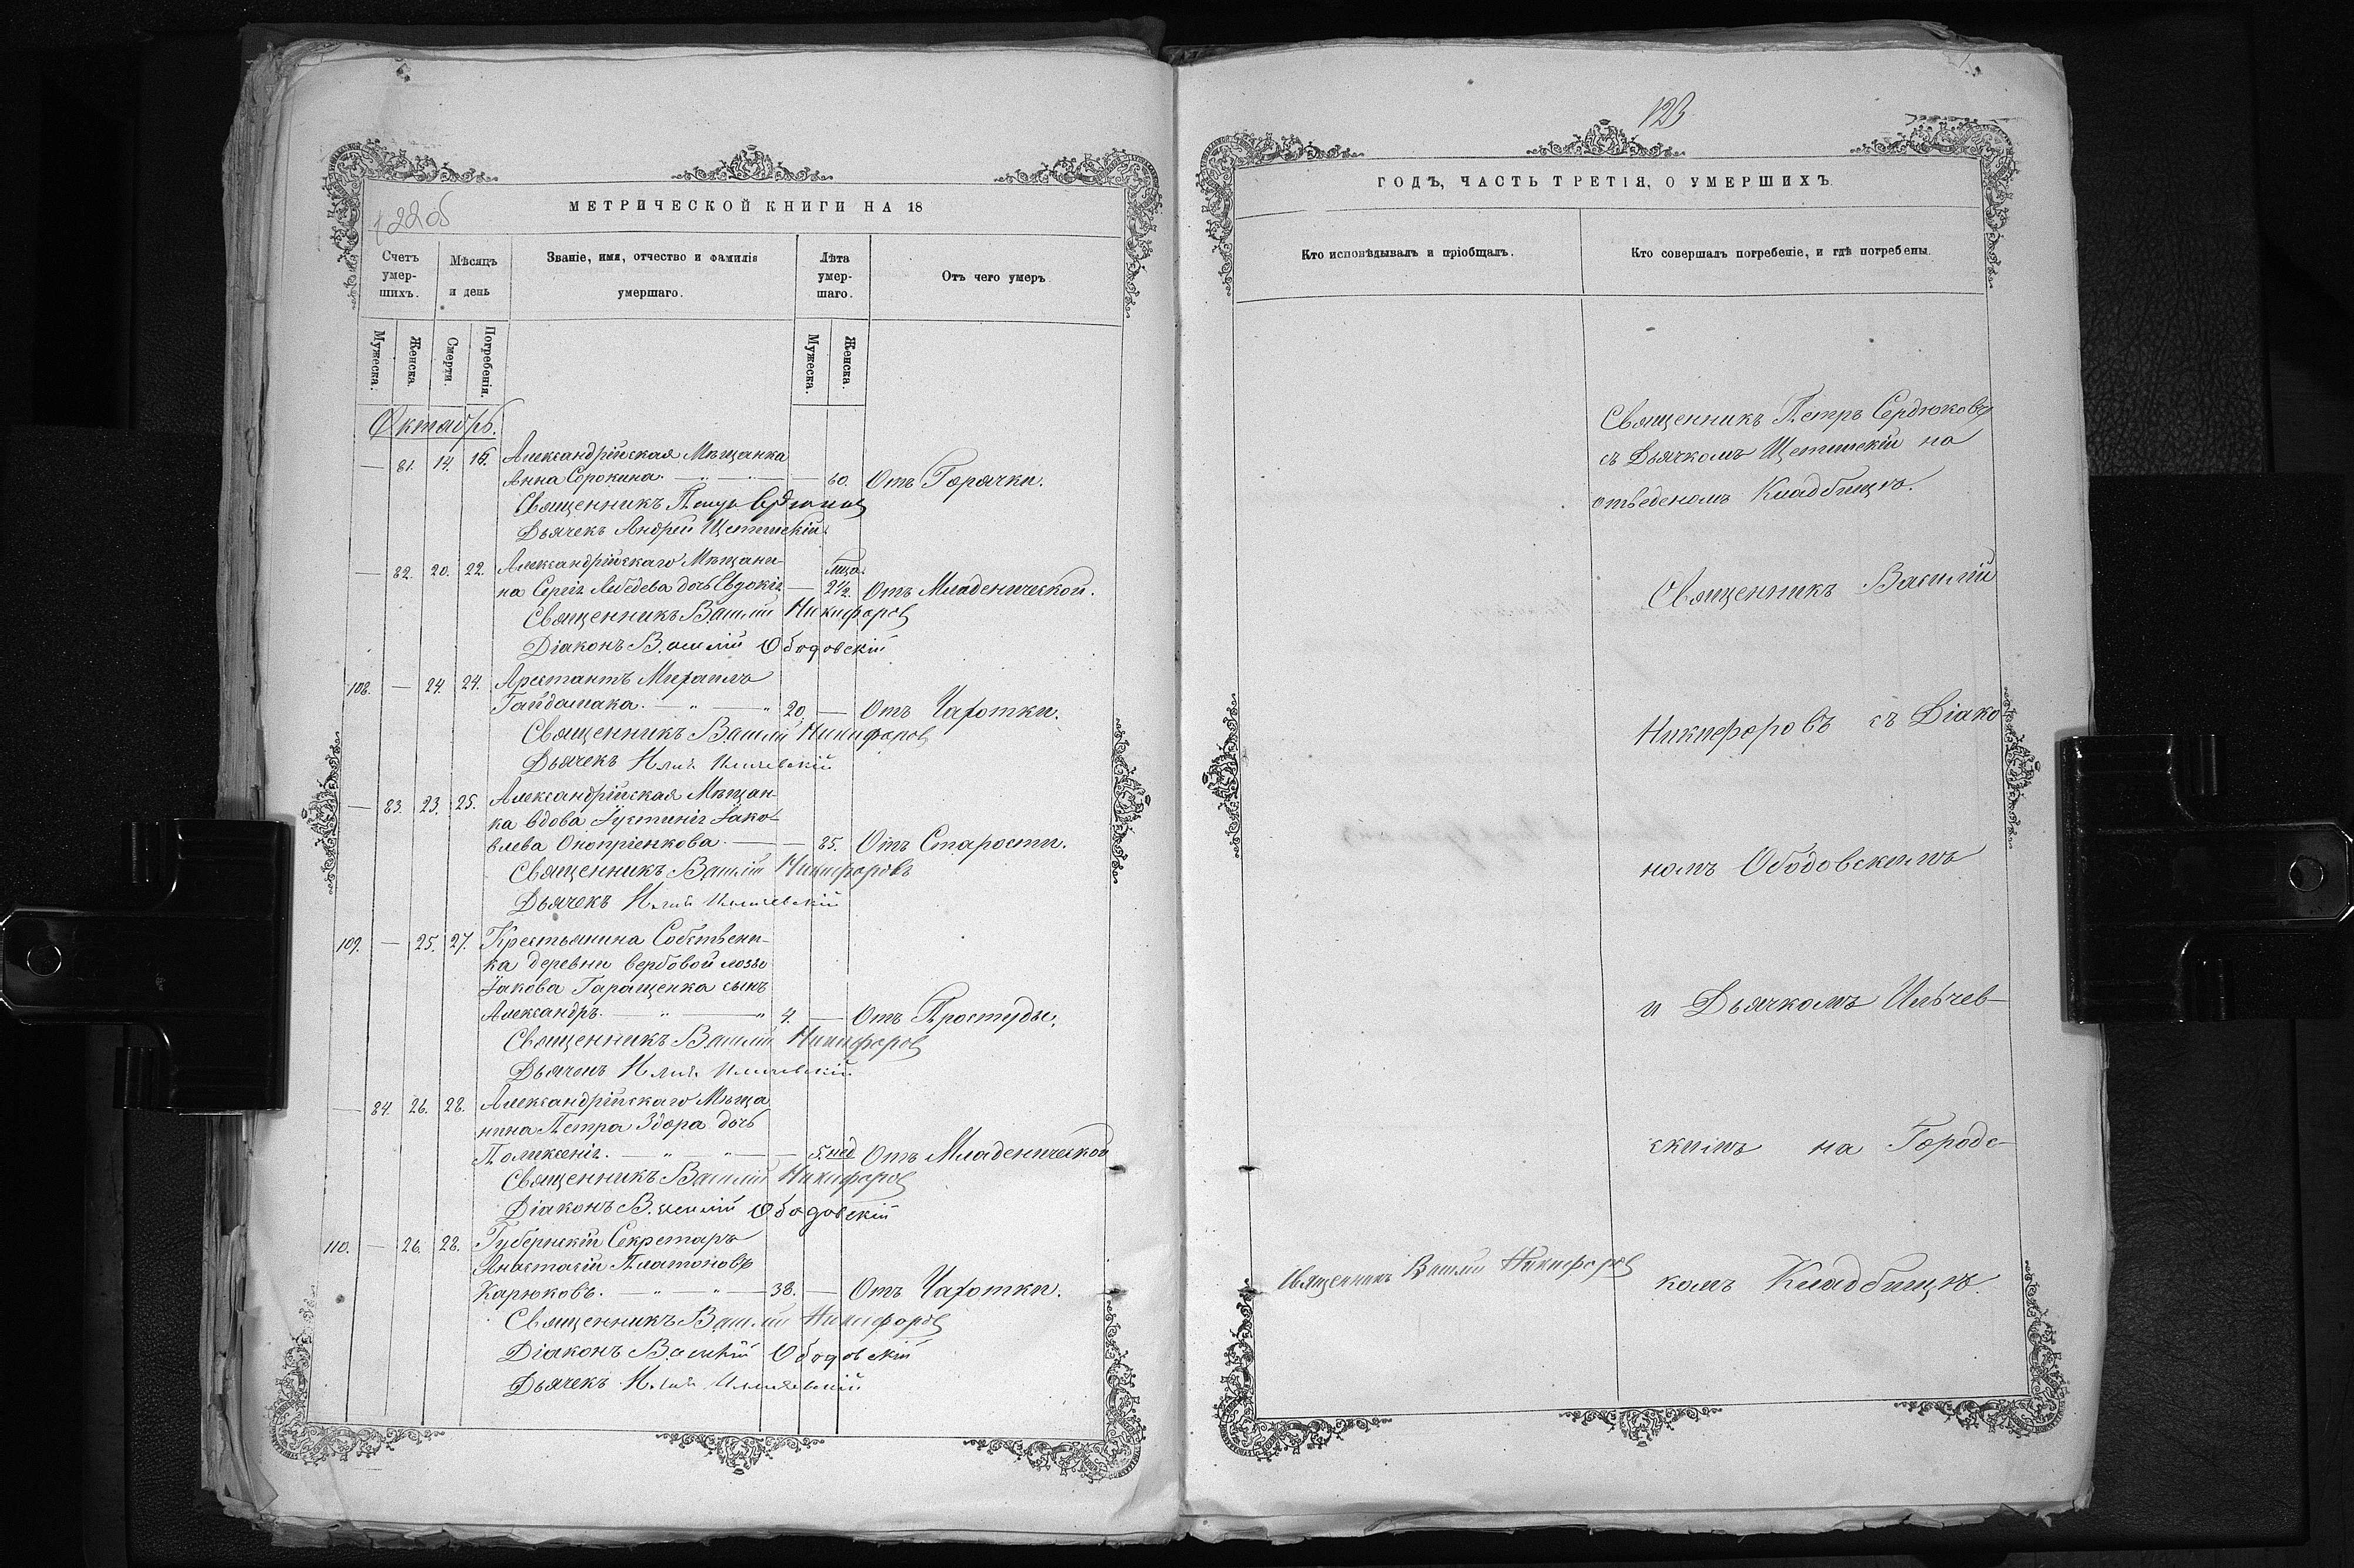 122об
МЕТРИЧЕСКОЙ КНИГИ НА 18
Счетъ умер-шихъ.
Мѣсяцъ и день
Званіе, имя, отчество и фамилія умершаго.
Лѣта умер-шаго.
Отъ чего умеръ
Мужеска.
Женска.
Смерти.
Погребенія.
Мужеска.
Женска.
Октябрь.
— 81. 14. 16. Александрійская Мѣщанка
Анна Сорокина. — 60. Отъ Горячки.
Священникъ Петръ Сердюковъ
Дьячекъ Андрей Щетинскій.
— 82. 20. 22. Александрійскаго Мѣщани-
на Сергія Лебедева дочь Евдокія — 2½. Отъ Младенческой.
Священникъ Василій Никифоровъ
Діаконъ Василій Ободовскій
108. — 24. 24. Арестантъ Михаилъ
Гайдамака. — 20. — Отъ Чахотки.
Священникъ Василій Никифоровъ
Дьячекъ Илія Ильчевскій
— 83. 23. 25. Александрійская Мѣщан-
ка вдова Іустинія Іако-
влева Оноприенкова. — 85. Отъ Старости.
Священникъ Василій Никифоровъ
Дьячекъ Илія Ильчевскій
109. — 25. 27. Крестьянина Собствени-
ка деревни вербовой лозы
Іакова Гаращенка сынъ
Александръ. — 4. — Отъ Простуды.
Священникъ Василій Никифоровъ
Дьячекъ Илія Ильчевскій
— 84. 26. 28. Александрійскаго Мѣща
нина Петра Здора дочь
Поликсенія. — 5. нед Отъ Младенческой
Священникъ Василій Никифоровъ
Діаконъ Василій Ободовскій
110. — 26. 28. Губернскій Секретаръ
Анастасій Платоновъ
Карюковъ. — 38. — Отъ Чахотки.
Священникъ Василій Никифоровъ
Діаконъ Василій Ободовскій
Дьячекъ Илія Ильчевскій
123
ГОДЪ, ЧАСТЬ ТРЕТІЯ, О УМЕРШИХЪ
Кто исповѣдывалъ и пріобщалъ.
Кто совершалъ погребеніе, и гдѣ погребены.
Священникъ Петръ Сердюковъ
съ Дьячкомъ Щетинскій на
отведеномъ Кладбищѣ.
Священникъ Василій
Никифоровъ съ Діако
номъ Ободовскимъ
и Дьячкомъ Ильчев-
скимъ на Городс-
Священникъ Василій Никифоровъ
комъ Кладбищѣ.